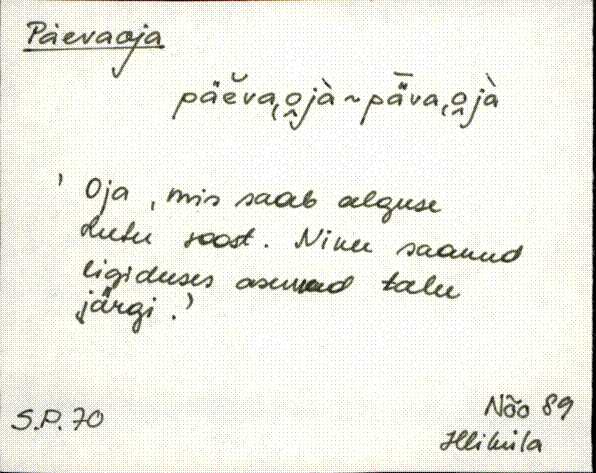 Päevaoja
päĕva͕o̭jà ~ pǟva͕o̭jà
' Oja, mis saab alguse
Lutu soost. Nime saanud
ligiduses asunud talu
järgi.'
S.P. 70
Nõo 89